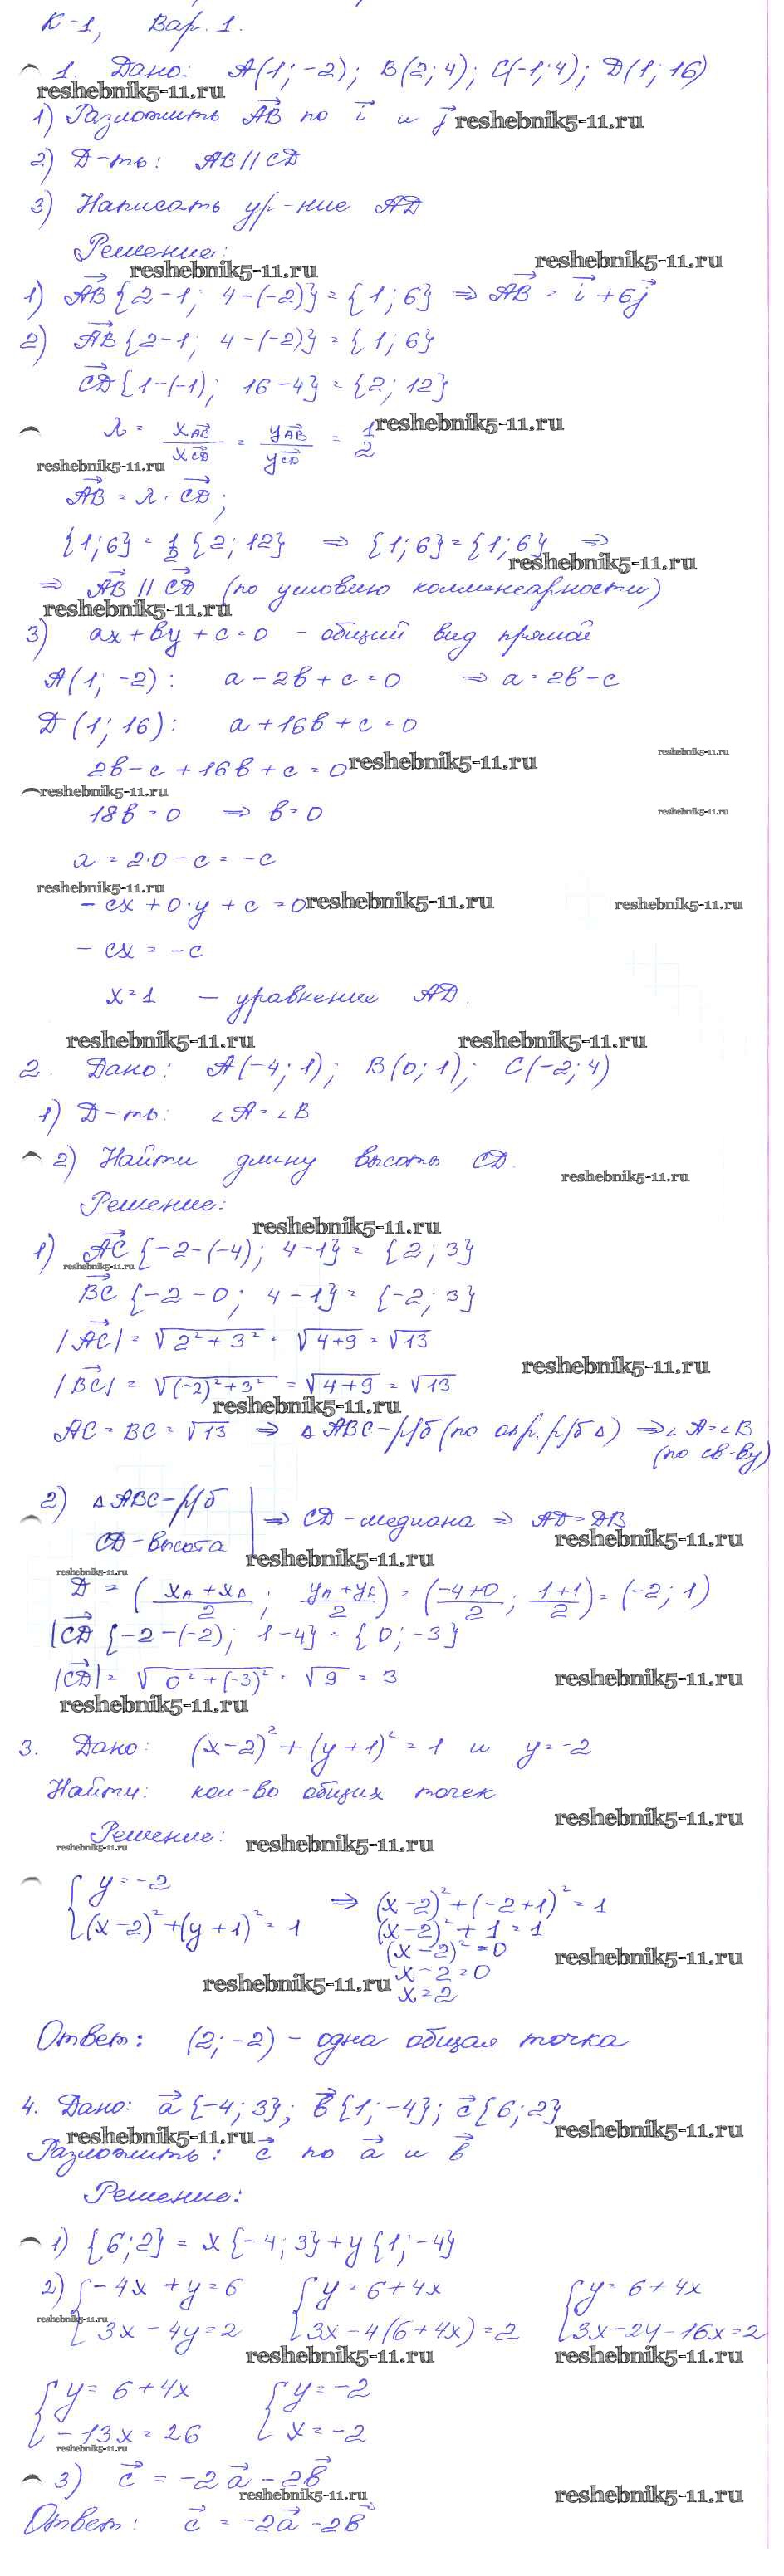 К-1, Вар. 1.
1. Дано: A(1; -2); B(2; 4); C(-1; 4); D(1; 16)
reshebnik5-11.ru
1) Разложить AB по i и j reshebnik5-11.ru
2) Д-ть: AB // CD
3) Написать ур-ние AD
Решение:
reshebnik5-11.ru reshebnik5-11.ru
1) AB {2-1; 4-(-2)} = {1; 6} ⇒ AB = i + 6j
2) AB {2-1; 4-(-2)} = {1; 6}
CD {1-(-1); 16-4} = {2; 12}
λ = xAB/xCD = yAB/yCD = 1/2 reshebnik5-11.ru
reshebnik5-11.ru
AB = λ · CD;
{1; 6} = 1/2 {2; 12} ⇒ {1; 6} = {1; 6} ⇒
reshebnik5-11.ru
⇒ AB // CD (по условию коллинеарности)
reshebnik5-11.ru
3) ax + by + c = 0 - общий вид прямой
A(1; -2): a - 2b + c = 0 ⇒ a = 2b - c
D(1; 16): a + 16b + c = 0
2b - c + 16b + c = 0 reshebnik5-11.ru reshebnik5-11.ru
reshebnik5-11.ru
18b = 0 ⇒ b = 0 reshebnik5-11.ru
a = 2·0 - c = -c
reshebnik5-11.ru
-cx + 0·y + c = 0 reshebnik5-11.ru reshebnik5-11.ru
-cx = -c
x = 1 - уравнение AD.
reshebnik5-11.ru reshebnik5-11.ru
2. Дано: A(-4; 1); B(0; 1); C(-2; 4)
1) Д-ть: ∠A = ∠B
2) Найти длину высоты CD.
reshebnik5-11.ru
Решение:
reshebnik5-11.ru
1) AC {-2-(-4); 4-1} = {2; 3}
reshebnik5-11.ru
BC {-2-0; 4-1} = {-2; 3}
|AC| = √(2² + 3²) = √(4+9) = √13
reshebnik5-11.ru
|BC| = √((-2)² + 3²) = √(4+9) = √13
reshebnik5-11.ru
AC = BC = √13 ⇒ △ABC - р/б (по опр. р/б △) ⇒ ∠A = ∠B
(по св-ву)
2) △ABC - р/б
⇒ CD - медиана ⇒ AD = DB
CD - высота reshebnik5-11.ru reshebnik5-11.ru
reshebnik5-11.ru
D = ((xA + xB)/2; (yA + yB)/2) = ((-4+0)/2; (1+1)/2) = (-2; 1)
|CD {-2-(-2); 1-4} = {0; -3}
|CD| = √(0² + (-3)²) = √9 = 3 reshebnik5-11.ru
reshebnik5-11.ru
3. Дано: (x-2)² + (y+1)² = 1 и y = -2
Найти: кол-во общих точек
reshebnik5-11.ru
Решение:
reshebnik5-11.ru reshebnik5-11.ru
{ y = -2 ⇒ (x-2)² + (-2+1)² = 1
{ (x-2)² + (y+1)² = 1 (x-2)² + 1 = 1
(x-2)² = 0
reshebnik5-11.ru
x - 2 = 0
reshebnik5-11.ru
x = 2
Ответ: (2; -2) - одна общая точка
4. Дано: a {-4; 3}; b {1; -4}; c {6; 2}
reshebnik5-11.ru reshebnik5-11.ru
Разложить: c по a и b
Решение:
1) {6; 2} = x {-4; 3} + y {1; -4}
2) { -4x + y = 6 { y = 6 + 4x { y = 6 + 4x
reshebnik5-11.ru
{ 3x - 4y = 2 { 3x - 4(6 + 4x) = 2 { 3x - 24 - 16x = 2
reshebnik5-11.ru reshebnik5-11.ru
{ y = 6 + 4x { y = -2
{ -13x = 26 { x = -2
reshebnik5-11.ru
3) c = -2a - 2b
reshebnik5-11.ru reshebnik5-11.ru
Ответ: c = -2a - 2b